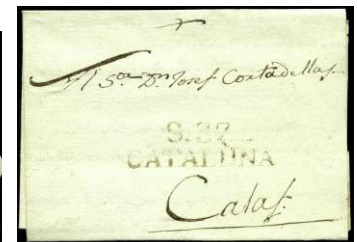 Al Sor. Dn. Josef Cortadellas
S.27
CATALUÑA
Calaf.